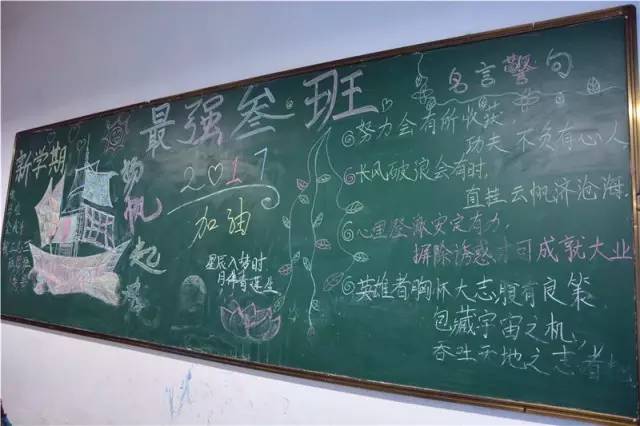 最强叁班
新学期
扬帆起
2017
加油
星辰入梦时
名言警句
努力会有所收获
功夫不负有心人
长风破浪会有时,
直挂云帆济沧海.
安定有力,
屏除诱惑才可成就大业
英雄者胸怀大志,腹有良策,
包藏宇宙之机,
吞生天地之志者